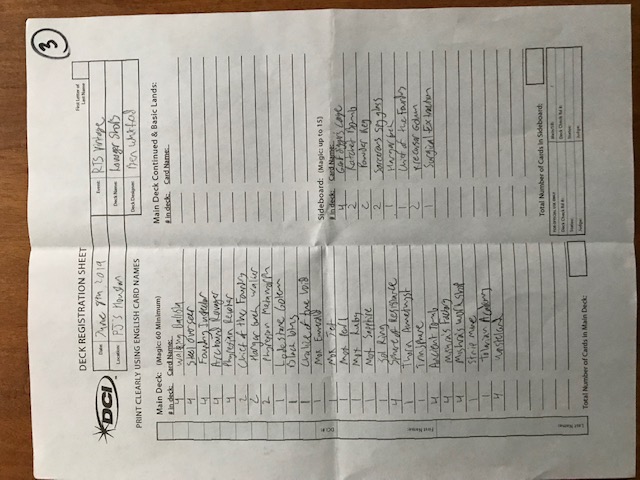 3
DECK REGISTRATION SHEET
First Letter of
Last Name
DCI
Date: June 8th 2019
Event: RIS Vintage
Location: PJ's Houston
Deck Name: Ravager Shops
Deck Designer: Ben
PRINT CLEARLY USING ENGLISH CARD NAMES
Main Deck: (Magic: 60 Minimum)
# in deck: Card Name:
4 Walking Ballista
4 Steel Overseer
4 Foundry Inspector
4 Arcbound Ravager
4 Phyrexian Revoker
2 Chief of the Foundry
2 Hangar back walker
2 Phyrexian Metamorph
1 Lodestone Golem
1 Black lotus
1 Chalice of the Void
1 Mox Emerald
1 Mox Jet
1 Mox Pearl
1 Mox Ruby
1 Mox Sapphire
1 Sol Ring
4 Sphere of Resistance
1 Thorn Amethyst
1 Trinisphere
4 Ancient Tomb
4 Mishra's Factory
4 Mishra's Workshop
1 Strip Mine
1 Tolarian Academy
4 Wasteland
Total Number of Cards in Main Deck:
Main Deck Continued & Basic Lands:
# in deck: Card Name:
Sideboard: (Magic: up to 15)
# in deck: Card Name:
4 Graf diggers cage
2 Ratchet Bomb
2 Powder Keg
2 Sorcerous Spyglass
1
1 Chief of the Foundry
2 Precursor Golem
1 Surgical Extraction
Total Number of Cards in Sideboard:
FOR OFFICIAL USE ONLY
Main/SB: /
Deck Check Rd #:
Deck Check Rd #:
Status:
Status:
Judge:
Judge:
DCI #:
First Name:
Last Name: